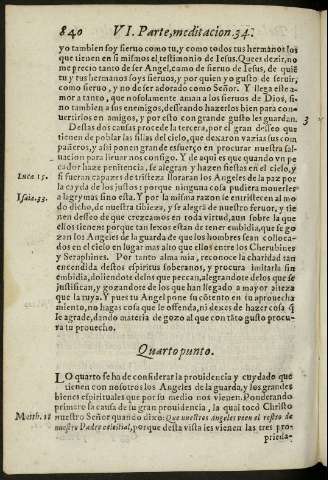 840 VI. Parte, meditacion. 34.
yo tambien soy sieruo como tu, y como todos tus hermanos los
que tienen en si mismos el testimonio de Iesus. Que es dezir, no
me precio tanto de ser Angel, como de sieruo de Iesus, de quiē
tu y tus hermanos soys sieruos, y por quien yo gusto de seruir,
como sieruo, y no de ser adorado como Señor. Y llega este a-
mor a tanto, que no solamente aman a los sieruos de Dios, si-
no tambien a sus enemigos, desseando hazerlos bien para con-
uertirlos en amigos, y por esto con grande gusto les guardan.
3
Destas dos causas procede la tercera, por el gran desseo que
tienen de poblar las sillas del cielo, que dexaron varias sus com
pañeros, y assi ponen grande esfuerço en procurar nuestra sal-
uacion para lleuar nos consigo. Y de aqui es que quando vn pe
cador haze penitencia, se alegran y hazen fiestas en el cielo, y
Luca. 15.
si fueran capaces de tristeza lloraran los Angeles de la paz por
la cayda de los justos: porque ninguna cosa pudiera mouerles
Isaia. 33.
a lagrymas sino esta. Y por la misma razon se entristecen al mo
do dicho, de nuestra tibieza, y se alegrā de nuestro feruor, y tie
nen desseo de que crezcamos en toda virtud, aun sobre la que
ellos tienen: porque tan lexos estan de tener embidia, que se go
zan los Angeles de la guarda de que los hombres sean colloca-
dos en el cielo en lugar mas alto que ellos entre los Cherubines
y Seraphines. Por tanto alma mia, reconoce la charidad tan
encendida destos espiritus soberanos, y procura imitarla sin
embidia, doliendote de los que peccan, alegrandote de los que se
justifican, y gozandote de los que han llegado a mayor alteza
que la tuya. Y pues tu Angel pone su cōtento en su aprouecha
miento, no hagas cosa que le offenda, ni dexes de hazer cosa q̄
le agrade, dando materia de gozo al que con tāto gusto procu-
ra tu prouecho.
Quarto punto.
LO quarto se ha de considerar la prouidencia y cuydado que
tienen con nosotros los Angeles de la guarda, y los grandes
bienes espirituales que por su medio nos vienen. Ponderando
primero la causa de su gran prouidencia, la qual tocò Christo
Matth. 18
nuestro Señor quando dixo: Que nuestros Angeles veen el rostro de
nuestro Padre celestial, porque desta vista les vienen las tres pro-
prieda-